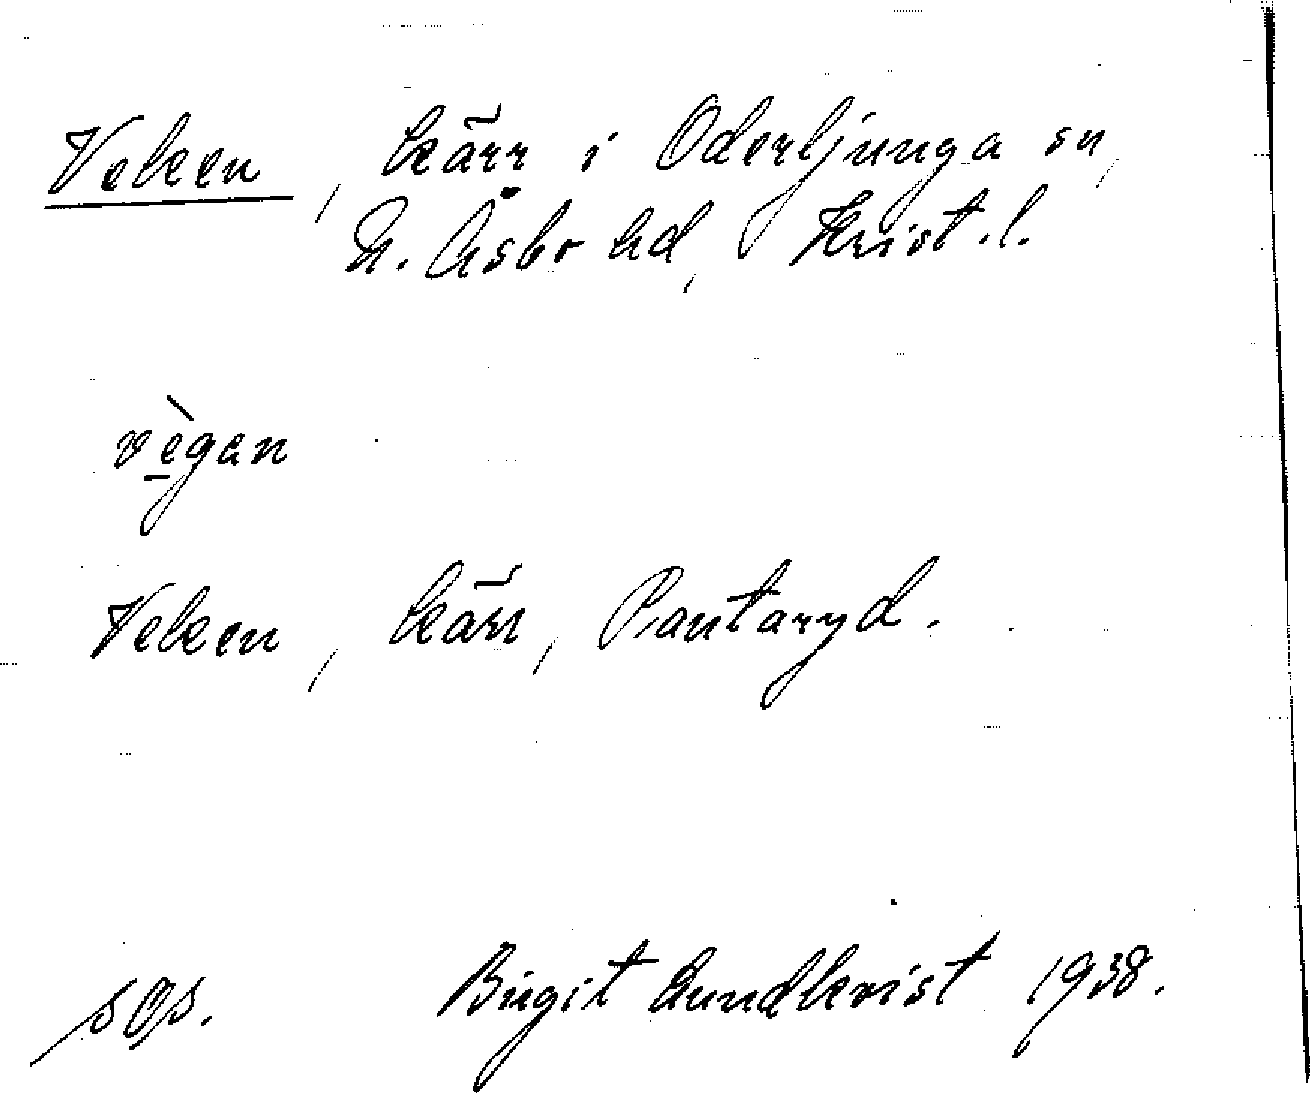 Veken, kärr i Oderljunga sn,
N. Åsbo hd, Krist. l.
vègan
Veken, kärr, Pantaryd.
Birgit Lundkvist 1938.